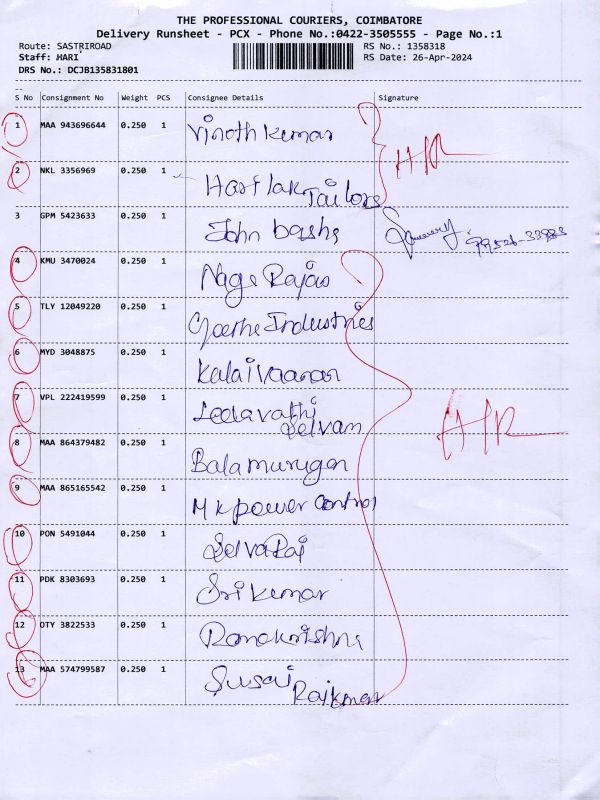 THE PROFESSIONAL COURIERS, COIMBATORE
Delivery Runsheet - PCX - Phone No.:0422-3505555 - Page No.:1
Route: SASTRIROAD RS No.: 1358318
Staff: HARI RS Date: 26-Apr-2024
DRS No.: DCJB135831801
S No Consignment No Weight PCS Consignee Details Signature
1 MAA 943696644 0.250 1 Vinoth kumar
2 NKL 3356969 0.250 1 Tailors
3 GPM 5423633 0.250 1 John bashs
4 KMU 3470024 0.250 1 Naga Rajas
5 TLY 12049220 0.250 1 Industries
6 MYD 3048875 0.250 1 Kalaivaanan
7 VPL 222419599 0.250 1 Leelavathi
Selvam
8 MAA 864379482 0.250 1 Balamurugan
9 MAA 865165542 0.250 1 M k power control
10 PON 5491044 0.250 1 Selva Raj
11 PDK 8303693 0.250 1 Sri kumar
12 OTY 3822533 0.250 1 Ramakrishna
13 MAA 574799587 0.250 1 Susai
Rajkmar
H/R
H/R